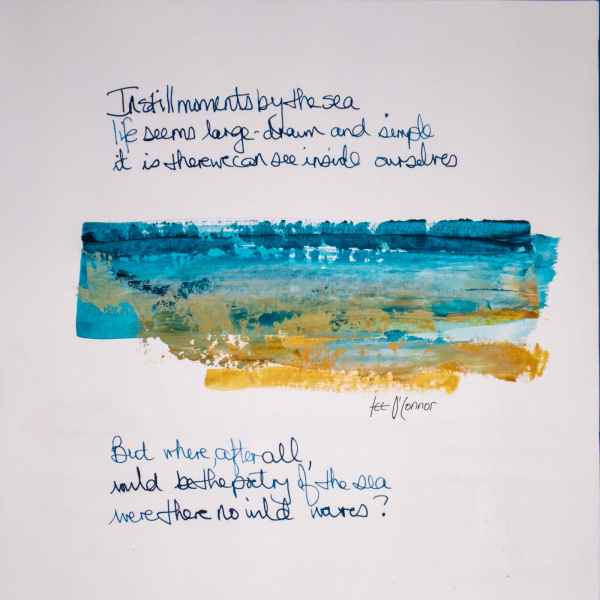 In still moments by the sea
life seems large-drawn and simple
it is there we can see inside ourselves
Lee O'Connor
But where, after all,
would be the poetry of the sea
were there no wild waves?